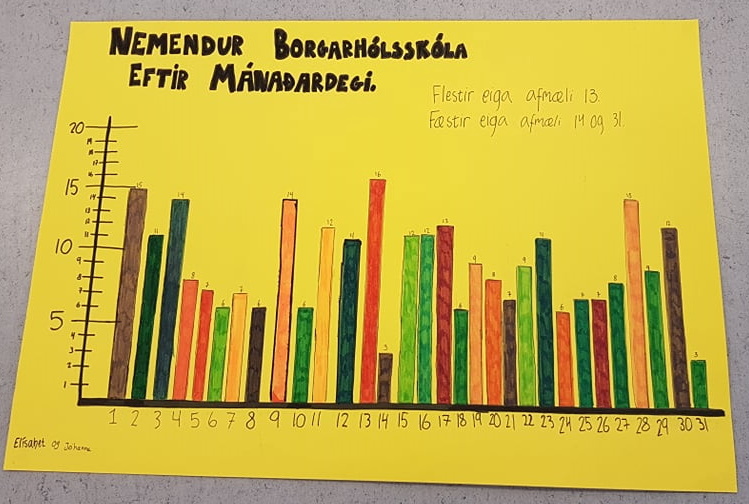 NEMENDUR BORGARHÓLSSKÓLA
EFTIR MÁNAÐARDEGI.
Flestir eiga afmæli 13.
Fæstir eiga afmæli 14 og 31.
20
19
18
17
16
15
14
13
12
11
10
9
8
7
6
5
4
3
2
1
15 11 14 8 7 6 7 6 14 6 12 11 16 3 11 11 12 6 9 8 7 9 11 6 7 7 8 14 9 12 3
1 2 3 4 5 6 7 8 9 10 11 12 13 14 15 16 17 18 19 20 21 22 23 24 25 26 27 28 29 30 31
Elísabet og Jóhanna